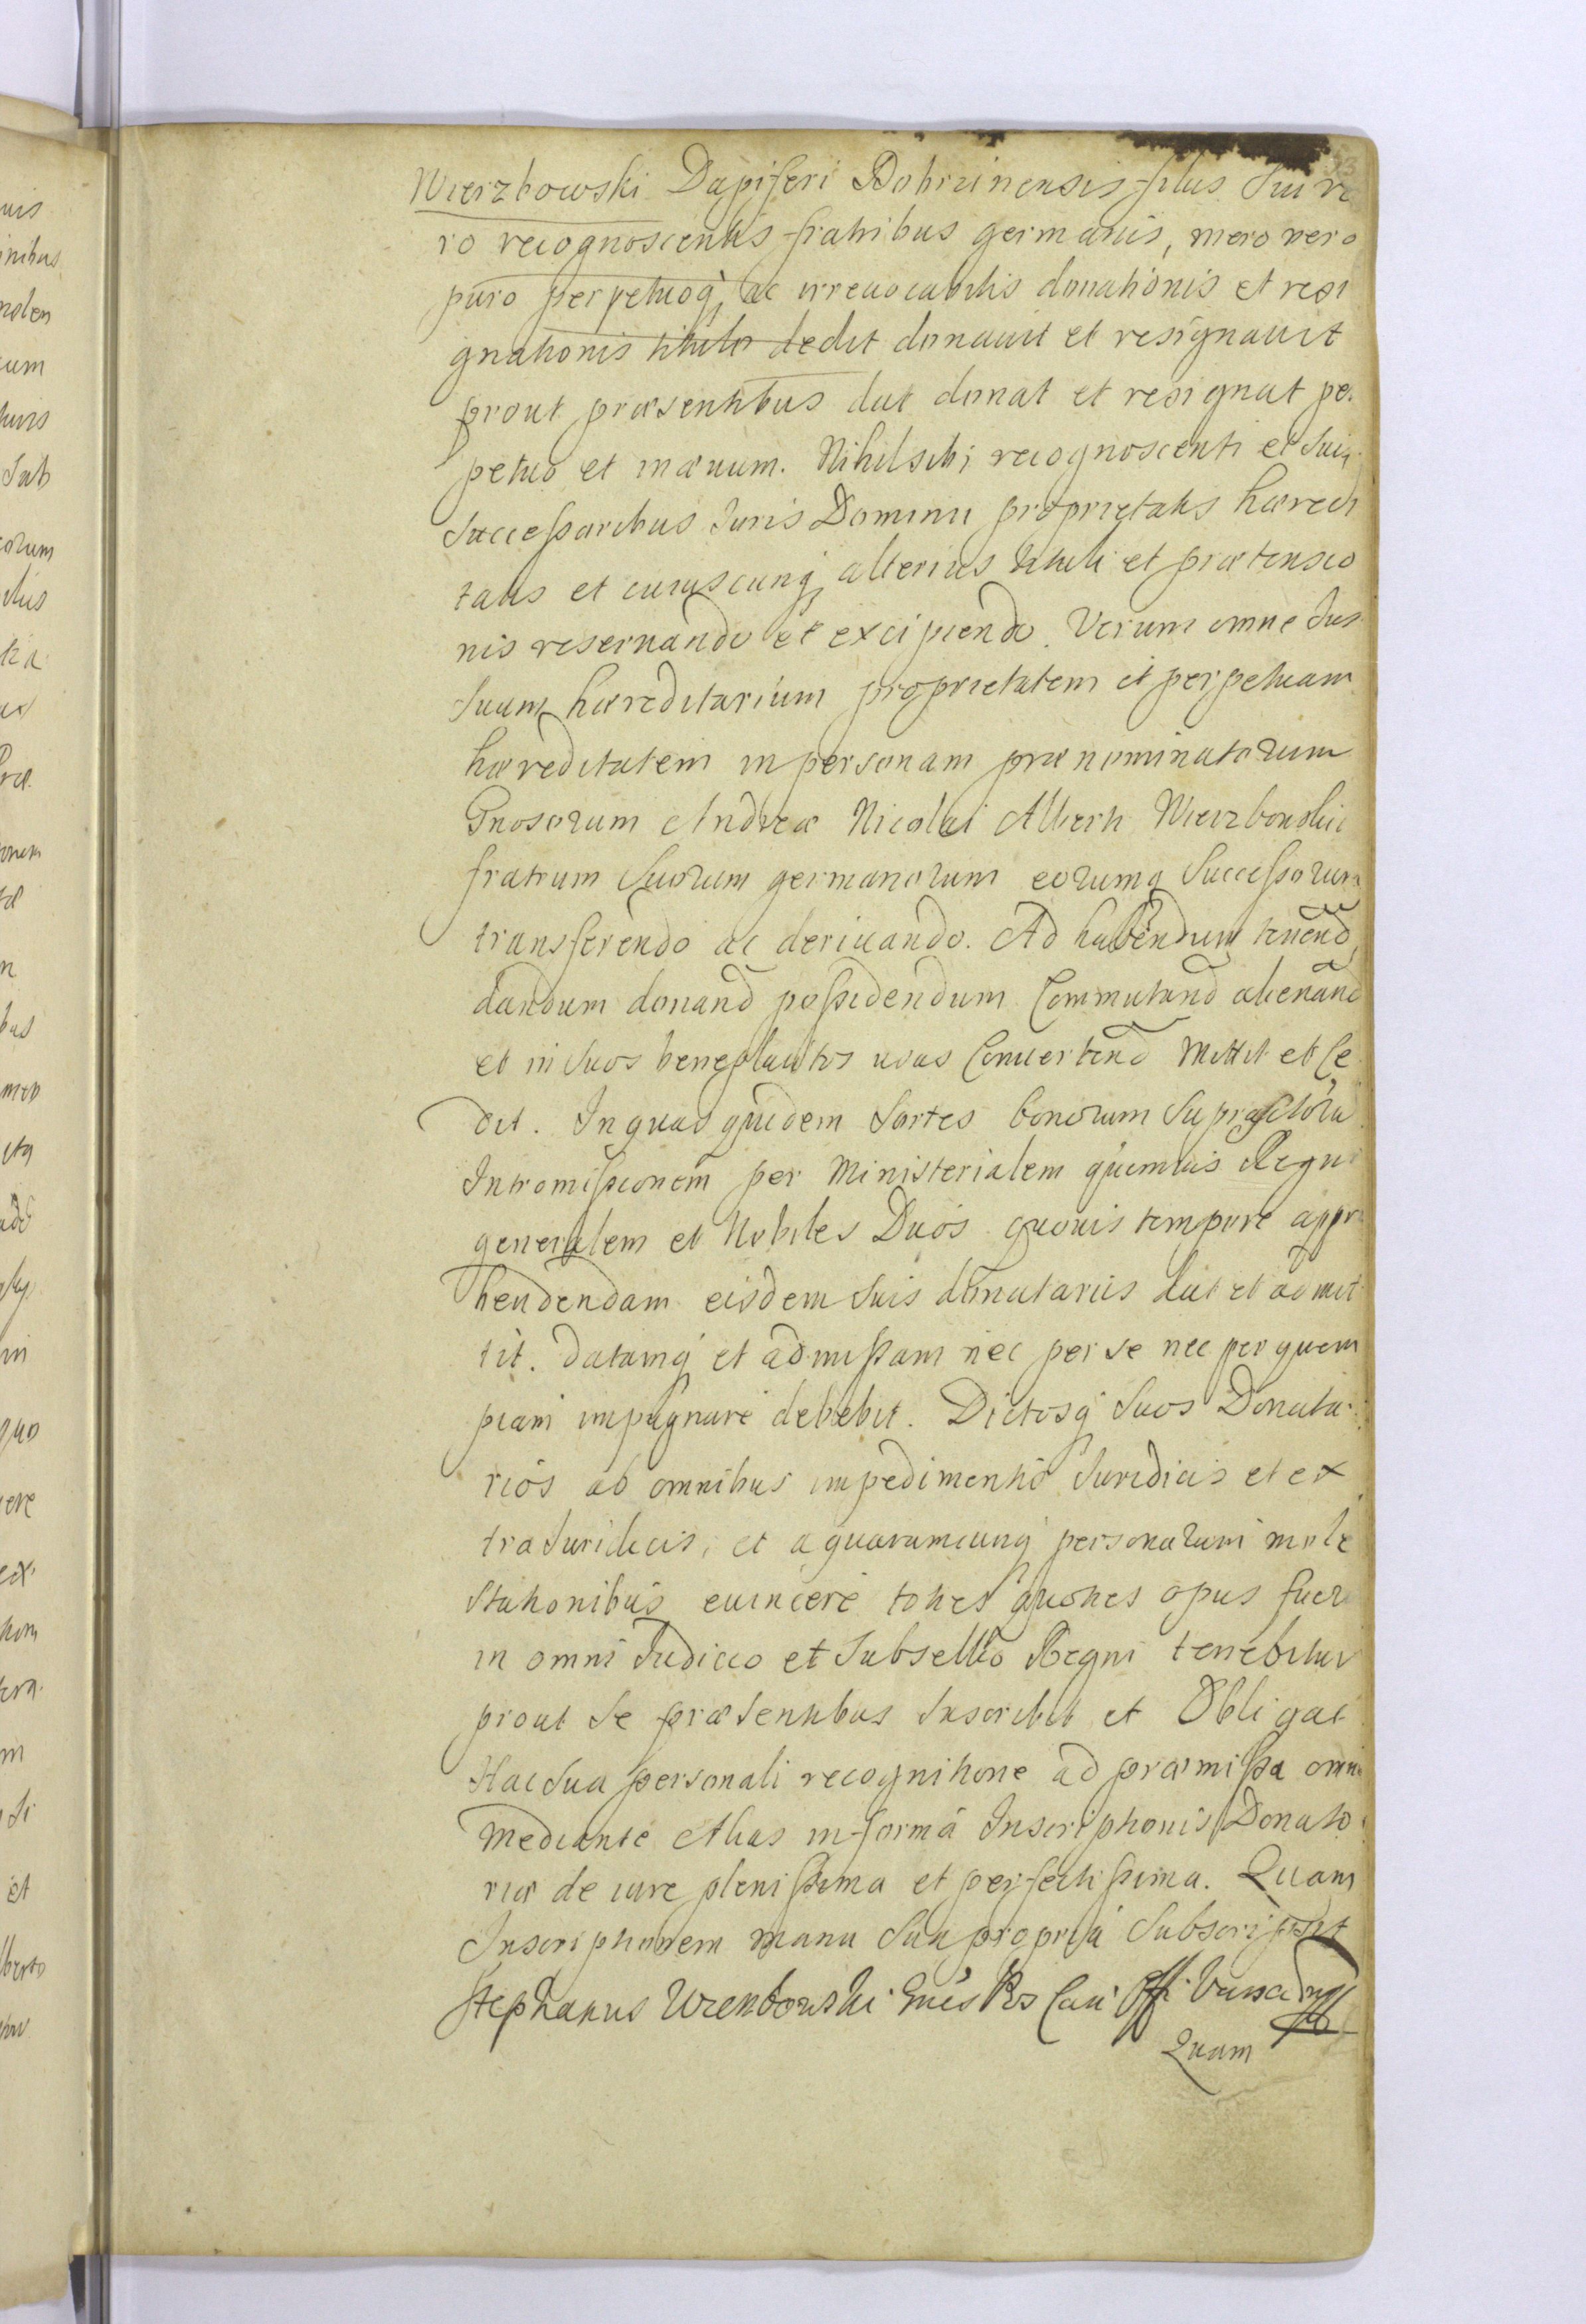 Wierzbowski Dapiferi Dobrinensis filus sui ve
ro recognoscentis fratribus germanis, mero vero
puro perpetuoq, ac irreuocabilis donationis et resi
gnationis titulo dedit donauit et resignauit
prout præsentibus dat donat et resignat per
petuo et in æuum. Nihil sibi recognoscenti et suis
successoribus Iuris Dominii proprietatis hæredi
tatis et cuiuscunq, alterius tituli et prætensio
nis reseruando et excipiendo. Verum omne Ius
suum hæreditarium proprietatem et perpetuam
hæreditatem in personam prænominatorum
Gnosorum Andreæ Nicolai Alberti Wierzbowskic
fratrum suorum germanorum eorumq successorum
transferendo ac deriuando. Ad habendum tenend
dandum donand possidendum Commutand alienand
et in suos beneplacitos usus Conuertend Mittit et Ce
dit. In quas quidem sortes bonorum supra
Intromissionem per Ministerialem quemuis Regni
generalem et Nobiles Duos quouis tempore appre
hendendam eisdem suis donatariis dat et admit
tit. datamq et admissam nec per se nec per quem
piam impugnare debebit. Dictosq suos Donata
rios ab omnibus impedimentis Iuridicis et ex
traIuridicis, et a quarumcunq personarum mole
stationibus euincere toties quoties opus fuer
in omni Iudicio et subsellio Regni tenebitur
prout se præsentibus Inscribit et Obligat
Hac sua personali recognitione ad præmissa omni
mediante Alias in forma Inscriptionis Donato
riæ de iure plenissima et perfectissima. Quam
Inscriptionem manu sua propria subscripsit
Stephanus Wierzbowski
Quam